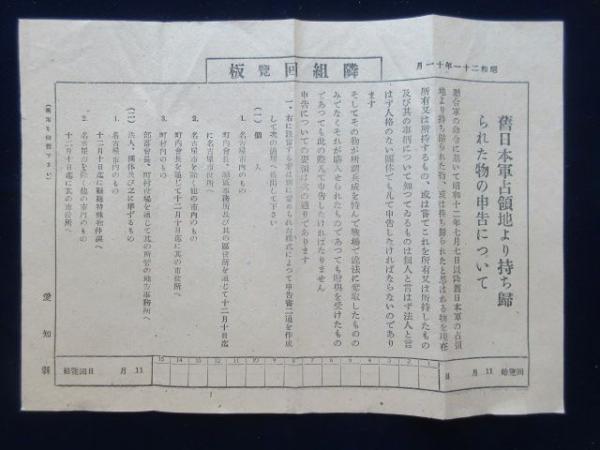 隣組回覧板
昭和二十一年十一月
舊日本軍占領地より持ち歸
られた物の申告について
聯合軍の命令に基いて昭和十二年七月七日以降舊日本軍の占領
地より持ち歸られた物、或は持ち歸られたと思はれる物を現在
所有又は所持するもの、或は嘗てこれを所有又は所持したもの
及び其の事柄について知つてゐるものは個人と言はず法人と言
はず人格のない團体でも凡て申告しなければならないのであり
ます
そしてその物が所謂兵威を恃んで戰場で不法に奪取したものの
みでなくそれが購入せられたものであつても贈與を受けたもの
であつても此の際凡て申告しなければなりません
申告についての要領は次の通りであります
一、右に該當する者は別に定められた様式によつて申告書二通を作成
して次の順序へ提出して下さい
(一) 個人
1. 名古屋市內のもの
町內會長、區事務所及び其の區役所を通じて十二月十日迄
に名古屋市役所へ
2. 名古屋市を除く他の市內のもの
町內會長を通じて十二月十日迄に其の市役所へ
3. 町村內のもの
部落會長、町村役場を通じて其の所管の地方事務所へ
(二) 法人、團体及び之に準ずるもの
1. 名古屋市內のもの
十二月十日迄に縣廳特殊物件課へ
2. 名古屋市を除く他の市內のもの
十二月十日迄に其の市役所へ
(裏面を御覽下さい)
愛知縣
15 14 13 12 11 10 9 8 7 6 5 4 3 2 1
回覽始 11月 日
回覽始 11月 日